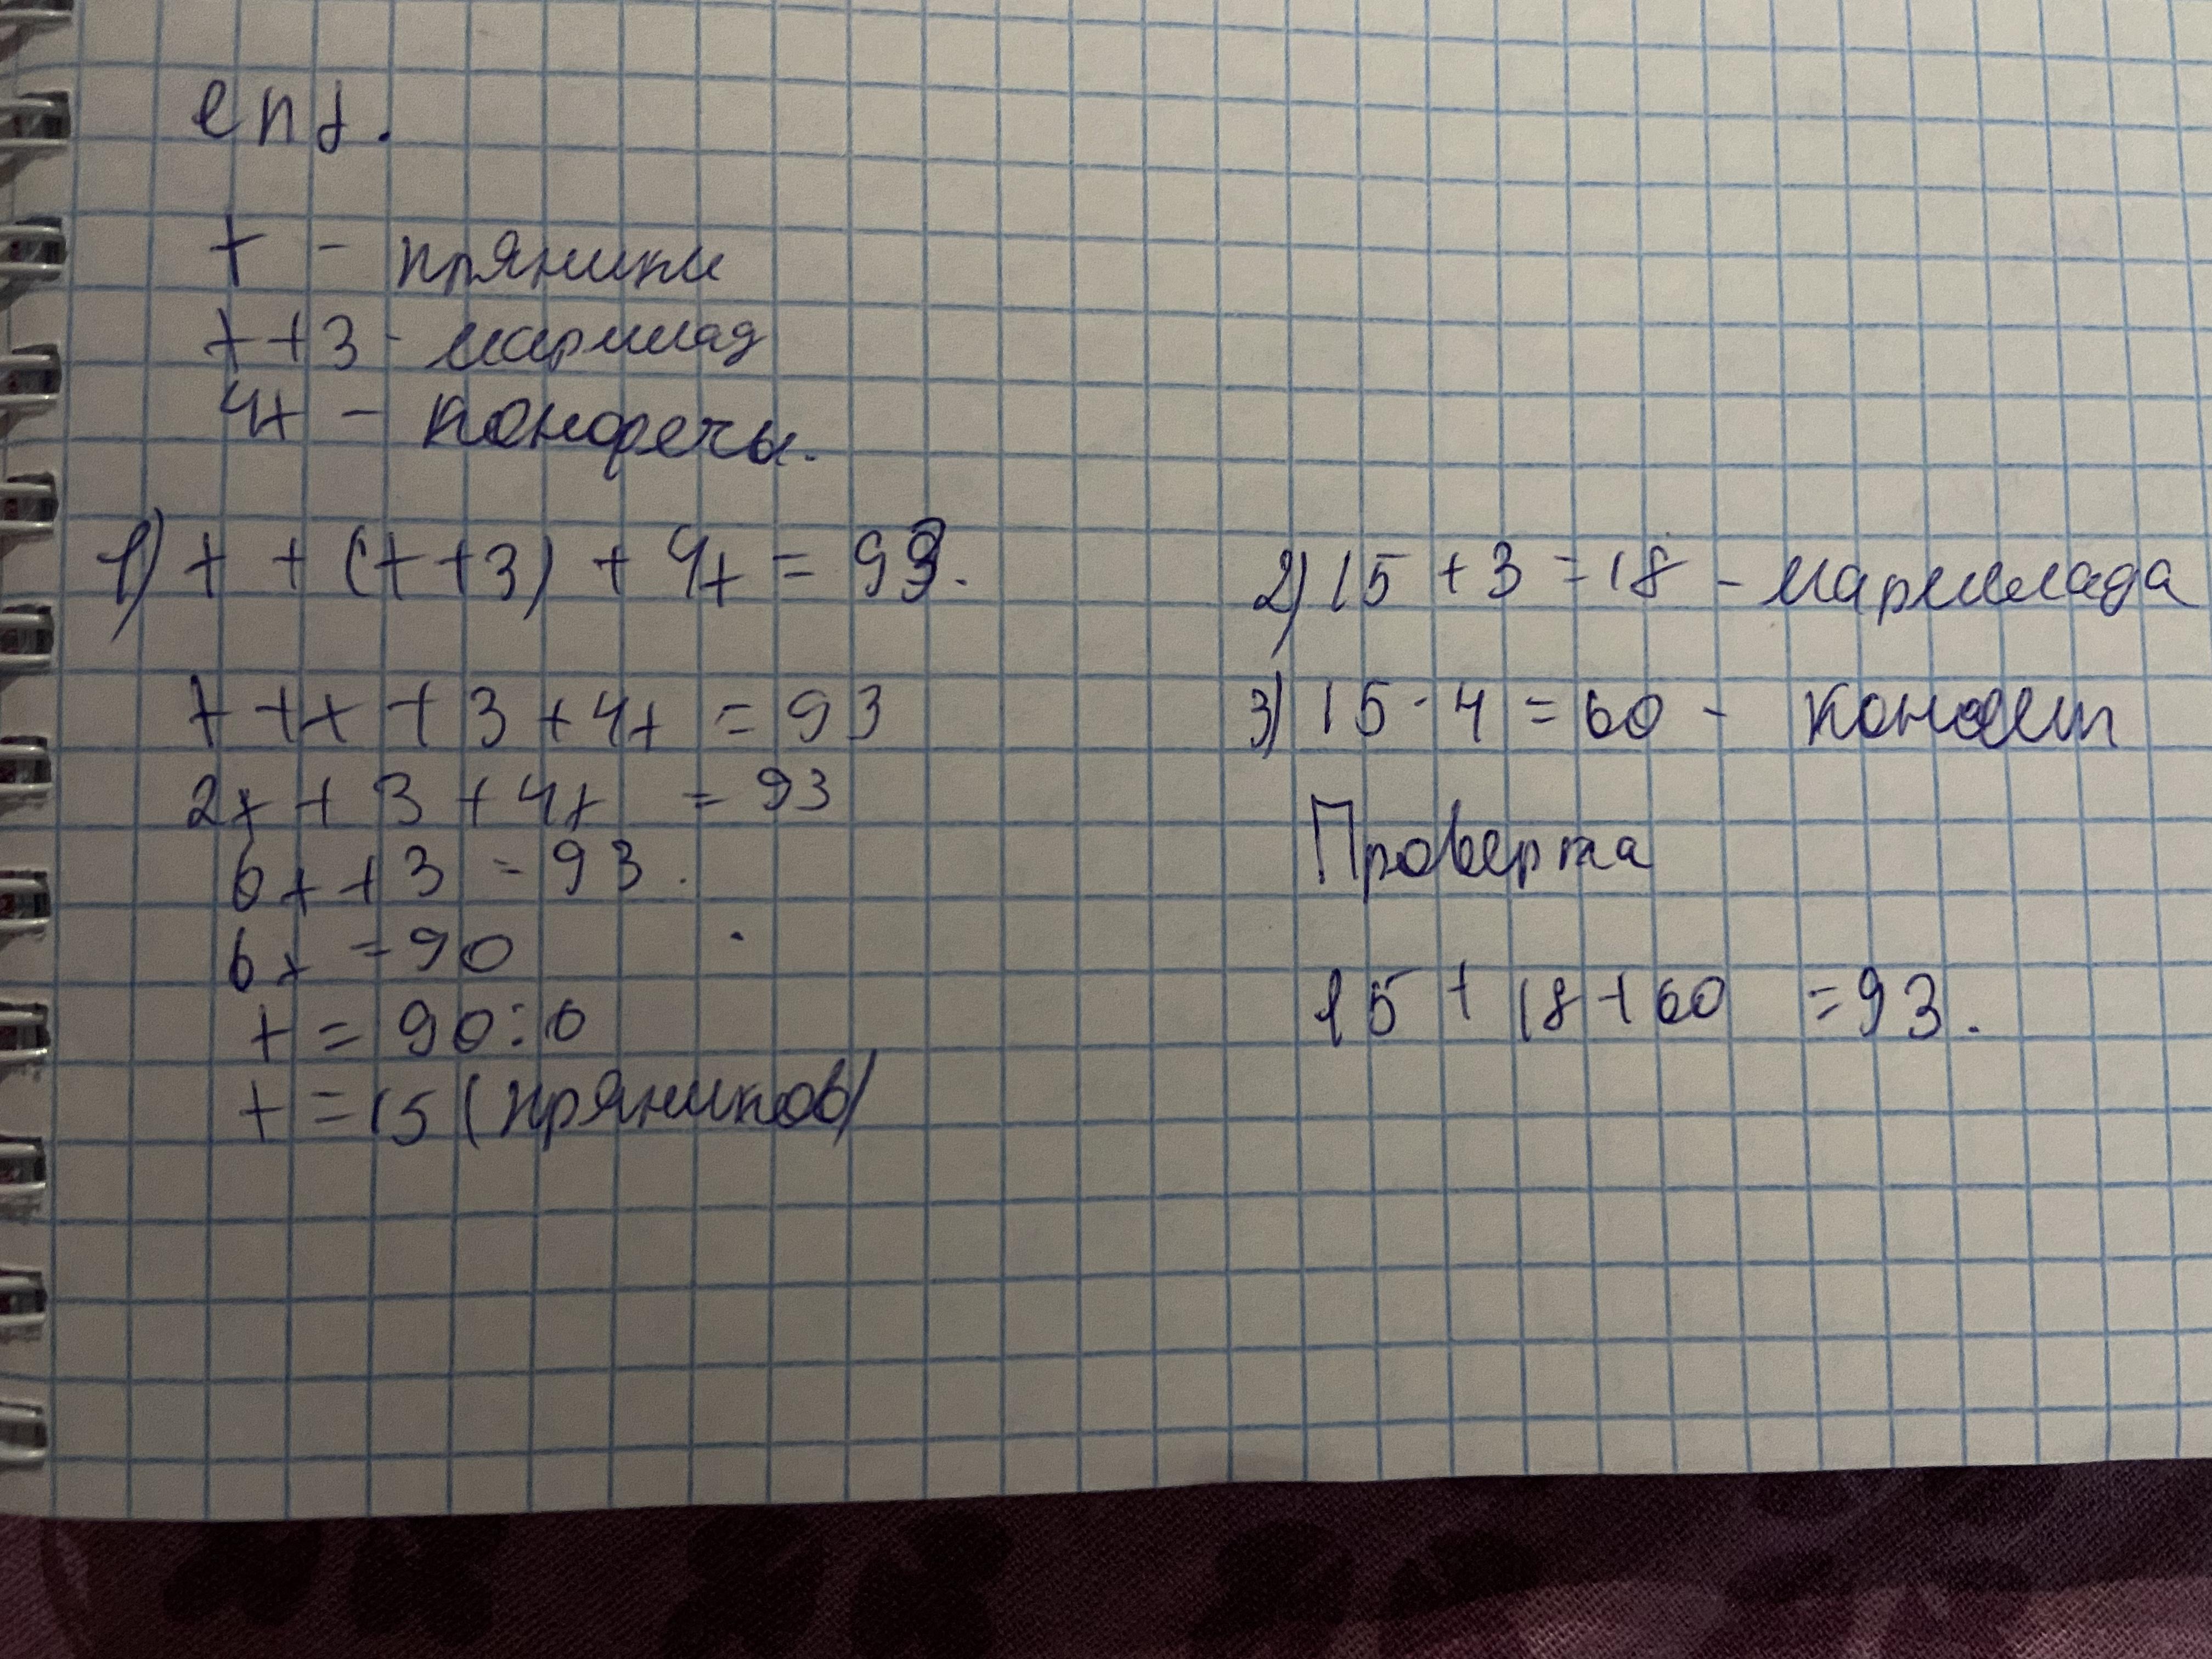 x - пряники
x + 3 - мармелад
4x - конфеты.
1) x + (x + 3) + 4x = 93.
x + x + 3 + 4x = 93
2x + 3 + 4x = 93
6x + 3 = 93.
6x = 90
x = 90 : 6
x = 15 (пряников)
2) 15 + 3 = 18 - мармелада
3) 15 · 4 = 60 - конфет
Проверка
15 + 18 + 60 = 93.